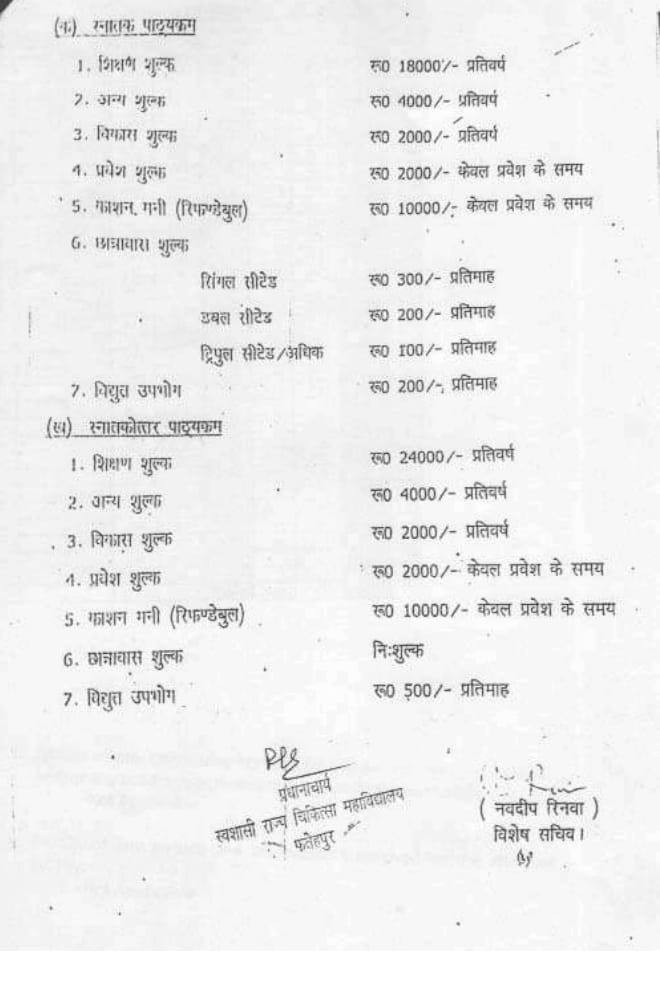 (क) स्नातक पाठ्यकम
1. शिक्षण शुल्क रू0 18000/- प्रतिवर्ष
2. अन्य शुल्क रू0 4000/- प्रतिवर्ष
3. विकास शुल्क रू0 2000/- प्रतिवर्ष
4. प्रवेश शुल्क रू0 2000/- केवल प्रवेश के समय
5. काशन मनी (रिफण्डेबुल) रू0 10000/- केवल प्रवेश के समय
6. छात्रावास शुल्क
सिंगल सीटेड रू0 300/- प्रतिमाह
डबल सीटेड रू0 200/- प्रतिमाह
ट्रिपुल सीटेड/अधिक रू0 100/- प्रतिमाह
7. विद्युत उपभोग रू0 200/- प्रतिमाह
(ख) स्नातकोत्तर पाठ्यकम
1. शिक्षण शुल्क रू0 24000/- प्रतिवर्ष
2. अन्य शुल्क रू0 4000/- प्रतिवर्ष
3. विकास शुल्क रू0 2000/- प्रतिवर्ष
4. प्रवेश शुल्क रू0 2000/- केवल प्रवेश के समय
5. काशन मनी (रिफण्डेबुल) रू0 10000/- केवल प्रवेश के समय
6. छात्रावास शुल्क निःशुल्क
7. विद्युत उपभोग रू0 500/- प्रतिमाह
प्रधानाचार्य
स्वशासी राज्य चिकित्सा महाविद्यालय
फतेहपुर
( नवदीप रिनवा )
विशेष सचिव।